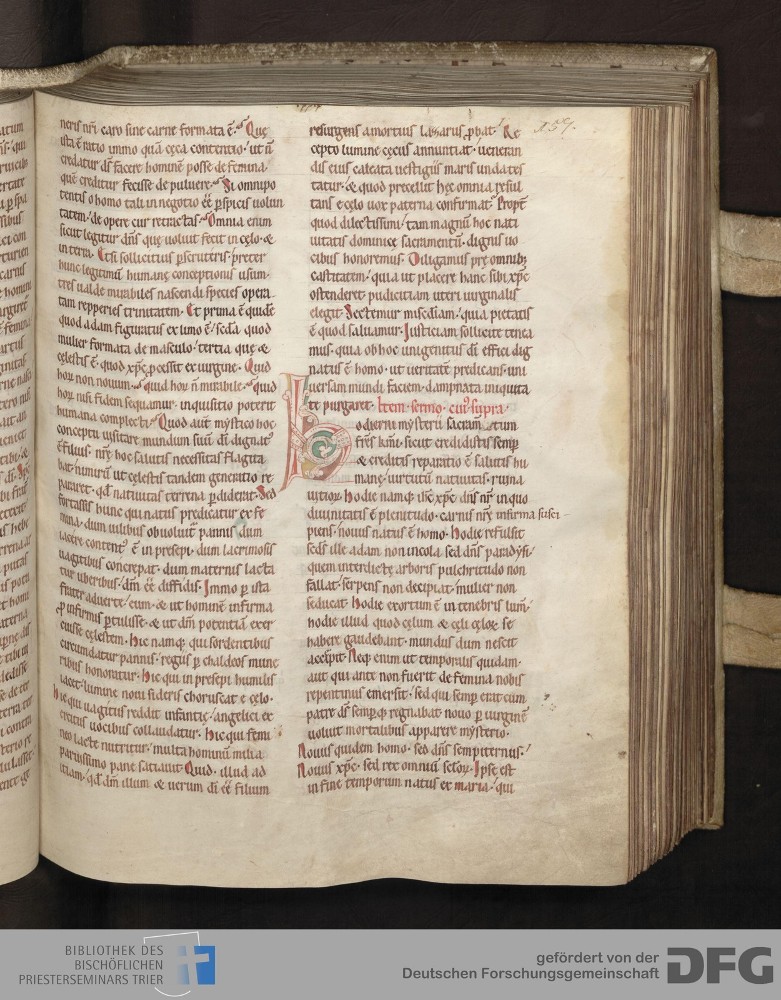 neris nr̄i caro sine carne formata ē. Quę
ista ē ratio immo quā cęca contentio. ut ñ
credatur ds̄ facere hominē posse de femina.
quē creditur fecisse de puluere. Si omnipo
tentis o homo tali in negotio eē p̱spicis uolun
tatem. de opere cur retractas. Omnia enim
sicut legitur dn̄s quę uoluit fecit in cęlo. &
in terra. Et si sollicitius p̱scruteris. preter
hunc legitimū humanę conceptionis usum.
tres ualde mirabiles nascendi species opera
tam repperies trinitatem. Et prima ē quidē
quod adam figuratus ex limo ē. sc̄da quod
mulier formata de masculo. tertia quę &
cęlestis ē. quod xp̄c p̱cessit ex uirgine. Quid
hoꝝ non nouum. quid hoꝝ ñ mirabile. quid
hoꝝ nisi fidem sequamur. inquisitio poterit
humana complecti. Quod aut̄ mystico hoc
conceptu uisitare mundum suū dī dignatꝰ
ē filius. nr̄ę hoc salutis necessitas flagita
bat. nimirū ut cęlestis tandem generatio re
pararet. qd̄ natiuitas terrena p̱diderat. Sed
fortassis hunc qui natus predicatur ex fe
mina. dum uilibus obuoluit̄ pannis. dum
iacere content̄ ē in presepi. dum lacrimosis
uagitibus concrepat. dum maternis lacta
tur uberibus. dm̄ eē diffidis. Immo p̱ ista
frater aduerte. eum. & ut hominē infirma
p̱ infirmis p̱tulisse. & ut dm̄ potentia exer
cuisse cęlestem. Hic namq; qui sordentibus
circumdatur pannis. regiis p̱ chaldeos mune
ribus honoratur. Hic qui in presepi humilis
iacet. lumine noui sideris choruscat e cęlo.
Hic qui uagitus reddit infantię. angelici ex
ercitus uocibus collaudatur. hic qui femi
neo lacte nutritur. multa hominū milia
paruissimo pane satiauit. Quid. illud ad
itiam. qd̄ dm̄ illum & uerum dī eē filium
resurgens a mortuis lazarus p̱bat. Re
cepto lumine cęcus annuntiat. ueneran
dis eius calcata uestigiis maris unda tes
tatur. & quod precellit hęc omnia resul
tans e cęlo uox paterna confirmat. Propt̄
quod dilectissimi. tam magnū hoc nati
uitatis dominicę sacramentū. dignis uo
cibus honoremus. Diligamus pre omnib;
castitatem. quia ut placere hanc sibi xp̄c
ostenderet. pudicitiam uteri uirginalis
elegit. Sectemur misc̄diam. quia pietatis
ē quod saluamur. Iusticiam sollicite tenea
mus. quia ob hoc unigenitus dī effici dig
natus ē homo. ut ueritatē predicans. uni
uersam mundi faciem. dampnata iniquita
te purgaret. Item. sermo. eiusꝰ supra.
Hodierni mysterii sacramentum
fr̄es km̄i. sicut credidistis semp̱
& creditis reparatio ē salutis hu
manę. uirtutū natiuitas. ruina
uitioꝝ. Hodie namq; ih̄c xp̄c dn̄s nr̄ in quo
diuinitatis ē plenitudo. carnis nr̄ę infirma susci
piens. nouus natus ē homo. Hodie refulsit
sc̄ds ille adam non incola sed dn̄s paradysi.
quem interdictę arboris pulchritudo non
fallat. serpens non decipiat. mulier non
seducat. Hodie exortum ē in tenebris lum̄.
hodie illud quod cęlum & cęli cęloꝝ se
habere gaudebant. mundus dum nescit
accepit. Neq; enim ut temporalis quidam.
aut qui ante non fuerit de femina nobis
repentinus emersit. sed qui semp̱ erat cum
patre ds̄ semp̱q; regnabat. nouo p̱ uirginē
uoluit mortalibus apparere mysterio.
Nouus quidem homo. sed dn̄s sempiternus.
Nouus xp̄c. sed rex omniū sc̄loꝝ. Ipse est
in fine temporum natus ex maria. qui
BIBLIOTHEK DES
BISCHÖFLICHEN
PRIESTERSEMINARS TRIER
gefördert von der
Deutschen Forschungsgemeinschaft
DFG